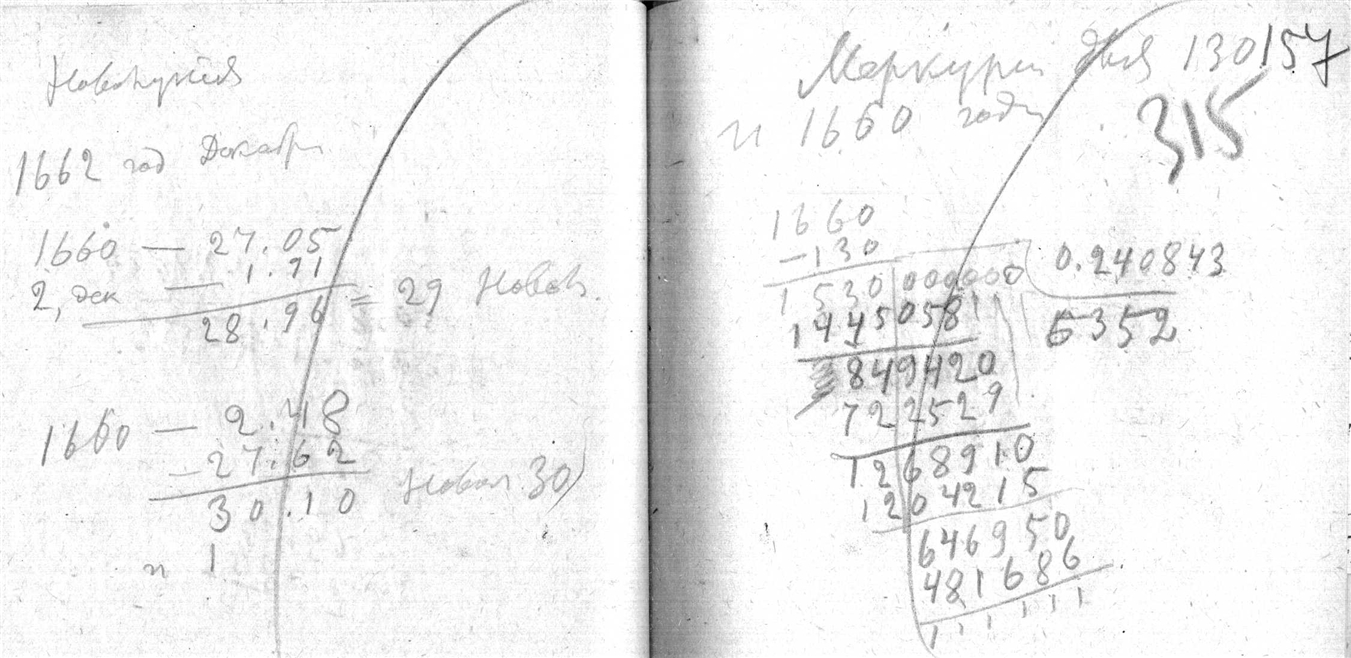 Новолуния
1662 год Декабрь
1660 — 27.05
2, дек — 1.91
28.96 = 29 Новол.
1660 — 2.48
— 27.62
30.10 Новол 30)
и 1
Меркурий для 130 157
и 1660 года
315
1660
—130
1530 000000 0.240843
1445058 6352
849420
722529
1268910
1204215
646950
481686
1 1 1 1 1 1